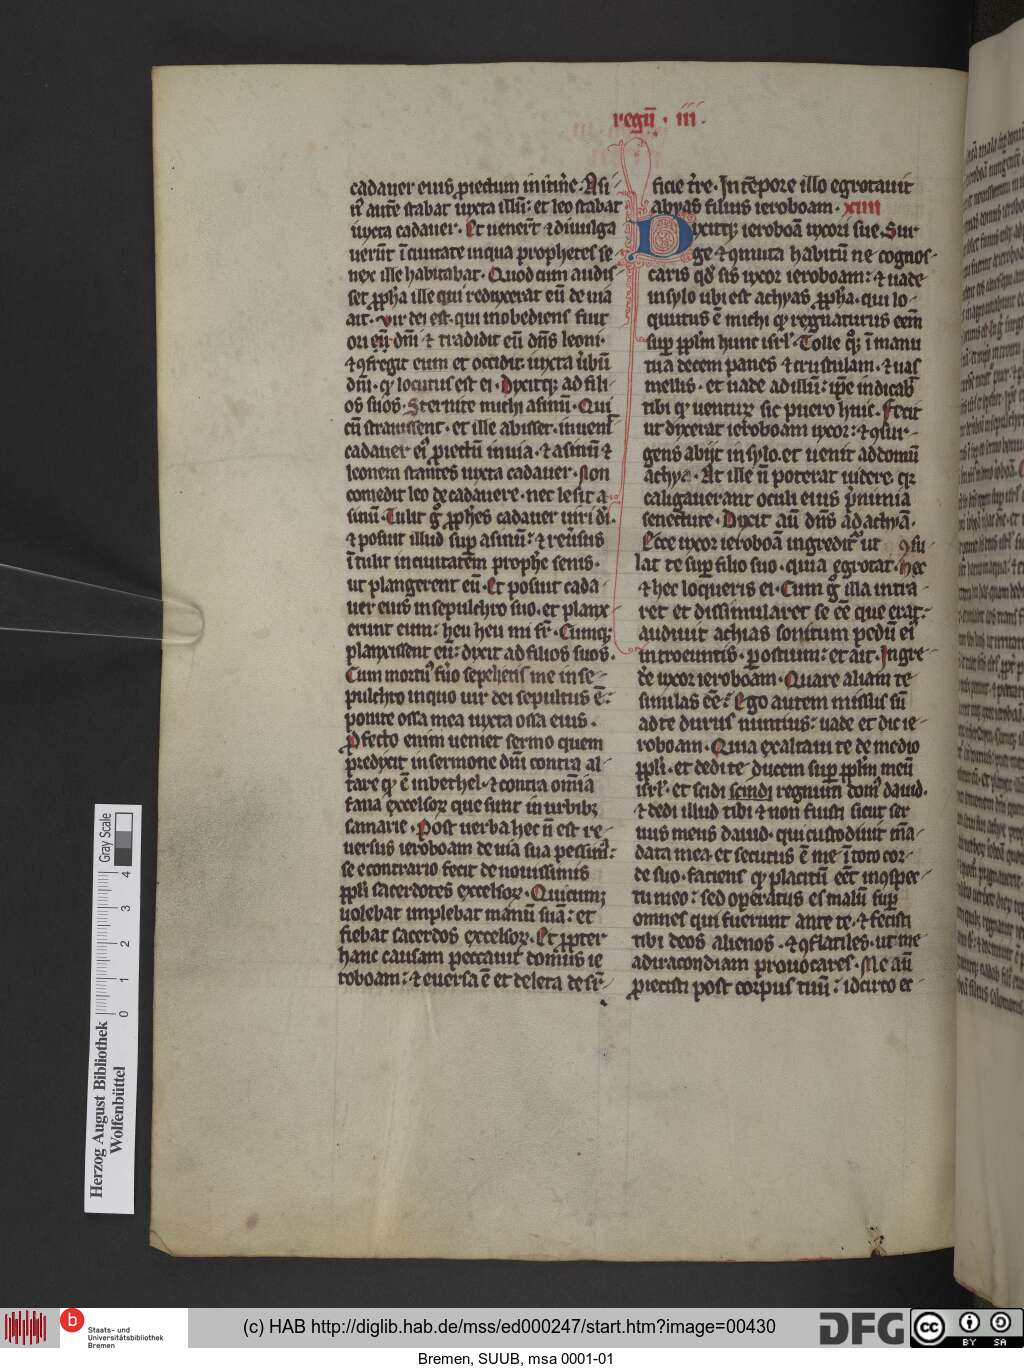 regū · iii ·
cadauer eius proiectum in itin̄e · Asi
n' autē stabat iuxta illū: et leo stabat
iuxta cadauer · Et uener̄t ⁊ diuulga
uerūt ī ciuitate in qua prophetes se
nex ille habitabat · Quod cum audis
set ꝓpħa ille qui reduxerat eū de uia
ait · Vir dei est · qui inobediens fuit
ori eiꝰ dn̄i ⁊ tradidit eū dn̄s leoni ·
⁊ ꝯfregit eum et occidit iuxta ůbū
dn̄i · ꝙ locutus est ei · Dixitqꝫ ad fili
os suos · Sternite michi asinū · Qui
cū strauissent · et ille abisset · inuenit
cadauer ei' proiectū in uia · ⁊ asinū ⁊
leonem stantes iuxta cadauer · Non
comedit leo de cadauere · nec lesit a
sinū · Tulit g̊ ꝓpħes cadauer uiri di ·
⁊ posuit illud suꝑ asinū: ⁊ reūsus
ītulit in ciuitatem prophe senis ·
ut plangerent eū · Et posuit cada
uer eius in sepulchro suo · et planx
erunt eum: heu heu mi fr̄ · Cumqꝫ
planxissent eū: dixit ad filios suos ·
Cum mortu' fůo sepelietis me in se
pulchro in quo uir dei sepultus ē:
ponite ossa mea iuxta ossa eius ·
Profecto enim ueniet sermo quem
predixit in sermone dn̄i contra al
tare ꝙ ē in bethel · ⁊ contra omīa
fana excelsoꝝ que sunt in urbibꝫ
samarie · Post uerba hec n̄ est re
uersus ieroboam de uia sua pessima:
se econtrario fecit de nouissimis
ppl̄i sacerdotes excelsoꝝ · Quicumqꝫ
uolebat implebat manū suā: et
fiebat sacerdos excelsoꝝ · Et propter
hanc causam peccauit domus ie
roboam: ⁊ euersa ē et deleta de suꝑ
ficie t̄re · In tēpore illo egrotauit
abyas filius ieroboam · xiiii
Dixitqꝫ ieroboā uxori sue · Sur
ge ⁊ ꝯmuta habitū ne cognos
caris qd̄ sis uxor ieroboam: ⁊ uade
in sylo ubi est achyas ꝓpħa · qui lo
quutus ē michi ꝙ regnaturus eēm
suꝑ ppl̄m hunc isrl̄ · Tolle qꝫ ī manu
tua decem panes ⁊ crustulam · ⁊ uas
mellis · et uade ad illū: ip̄e indicab
tibi ꝙ uenturū sic puero huic · Fecit
ut dixerat ieroboam uxor: ⁊ ꝯsur
gens abijt in sylo · et uenit ad domū
achye · At ille n̄ poterat uidere · qꝛ
caligauerant oculi eius p̄ nimia
senectute · Dixit aū dn̄s ad achyā ·
Ecce uxor ieroboā ingredit̄ ut ꝯsu
lat te suꝑ filio suo · qui a egrotat · Hec
⁊ hec loqueris ei · Cum g̊ illa intra
ret et dissimularet se eē que erat:
audiuit achias sonitum pedū ei'
introeuntis · ꝑ ostium: et ait · Ingre
d'e uxor ieroboam · Quare aliam te
similas eē: Ego autem missus sū
ad te durus nuntius: uade et dic ie
roboam · Quia exaltaui te de medio
ppl̄i · et dedi te ducem suꝑ ppl̄m meū
isrl̄ · et scidi scindi regnum dom' dauid ·
⁊ dedi illud tibi ⁊ non fuisti sicut ser
uus meus dauid · qui custodiuit mā
data mea et secutus ē me ī toto cor
de suo · faciens ꝙ placitū eēt in ꝯspec
tu meo: sed operatus es malū suꝑ
omnes qui fuerunt ante te · ⁊ fecisti
tibi deos alienos · ⁊ ꝯflatiles · ut me
ad iracondiam prouocares · Me aū
proiecisti post corpus tuū: idcirco et
Gray Scale
0 1 2 3 4
Herzog August Bibliothek
Wolfenbüttel
b
Staats- und
Universitätsbibliothek
Bremen
(c) HAB http://diglib.hab.de/mss/ed000247/start.htm?image=00430
DFG
cc
BY SA
Bremen, SUUB, msa 0001-01